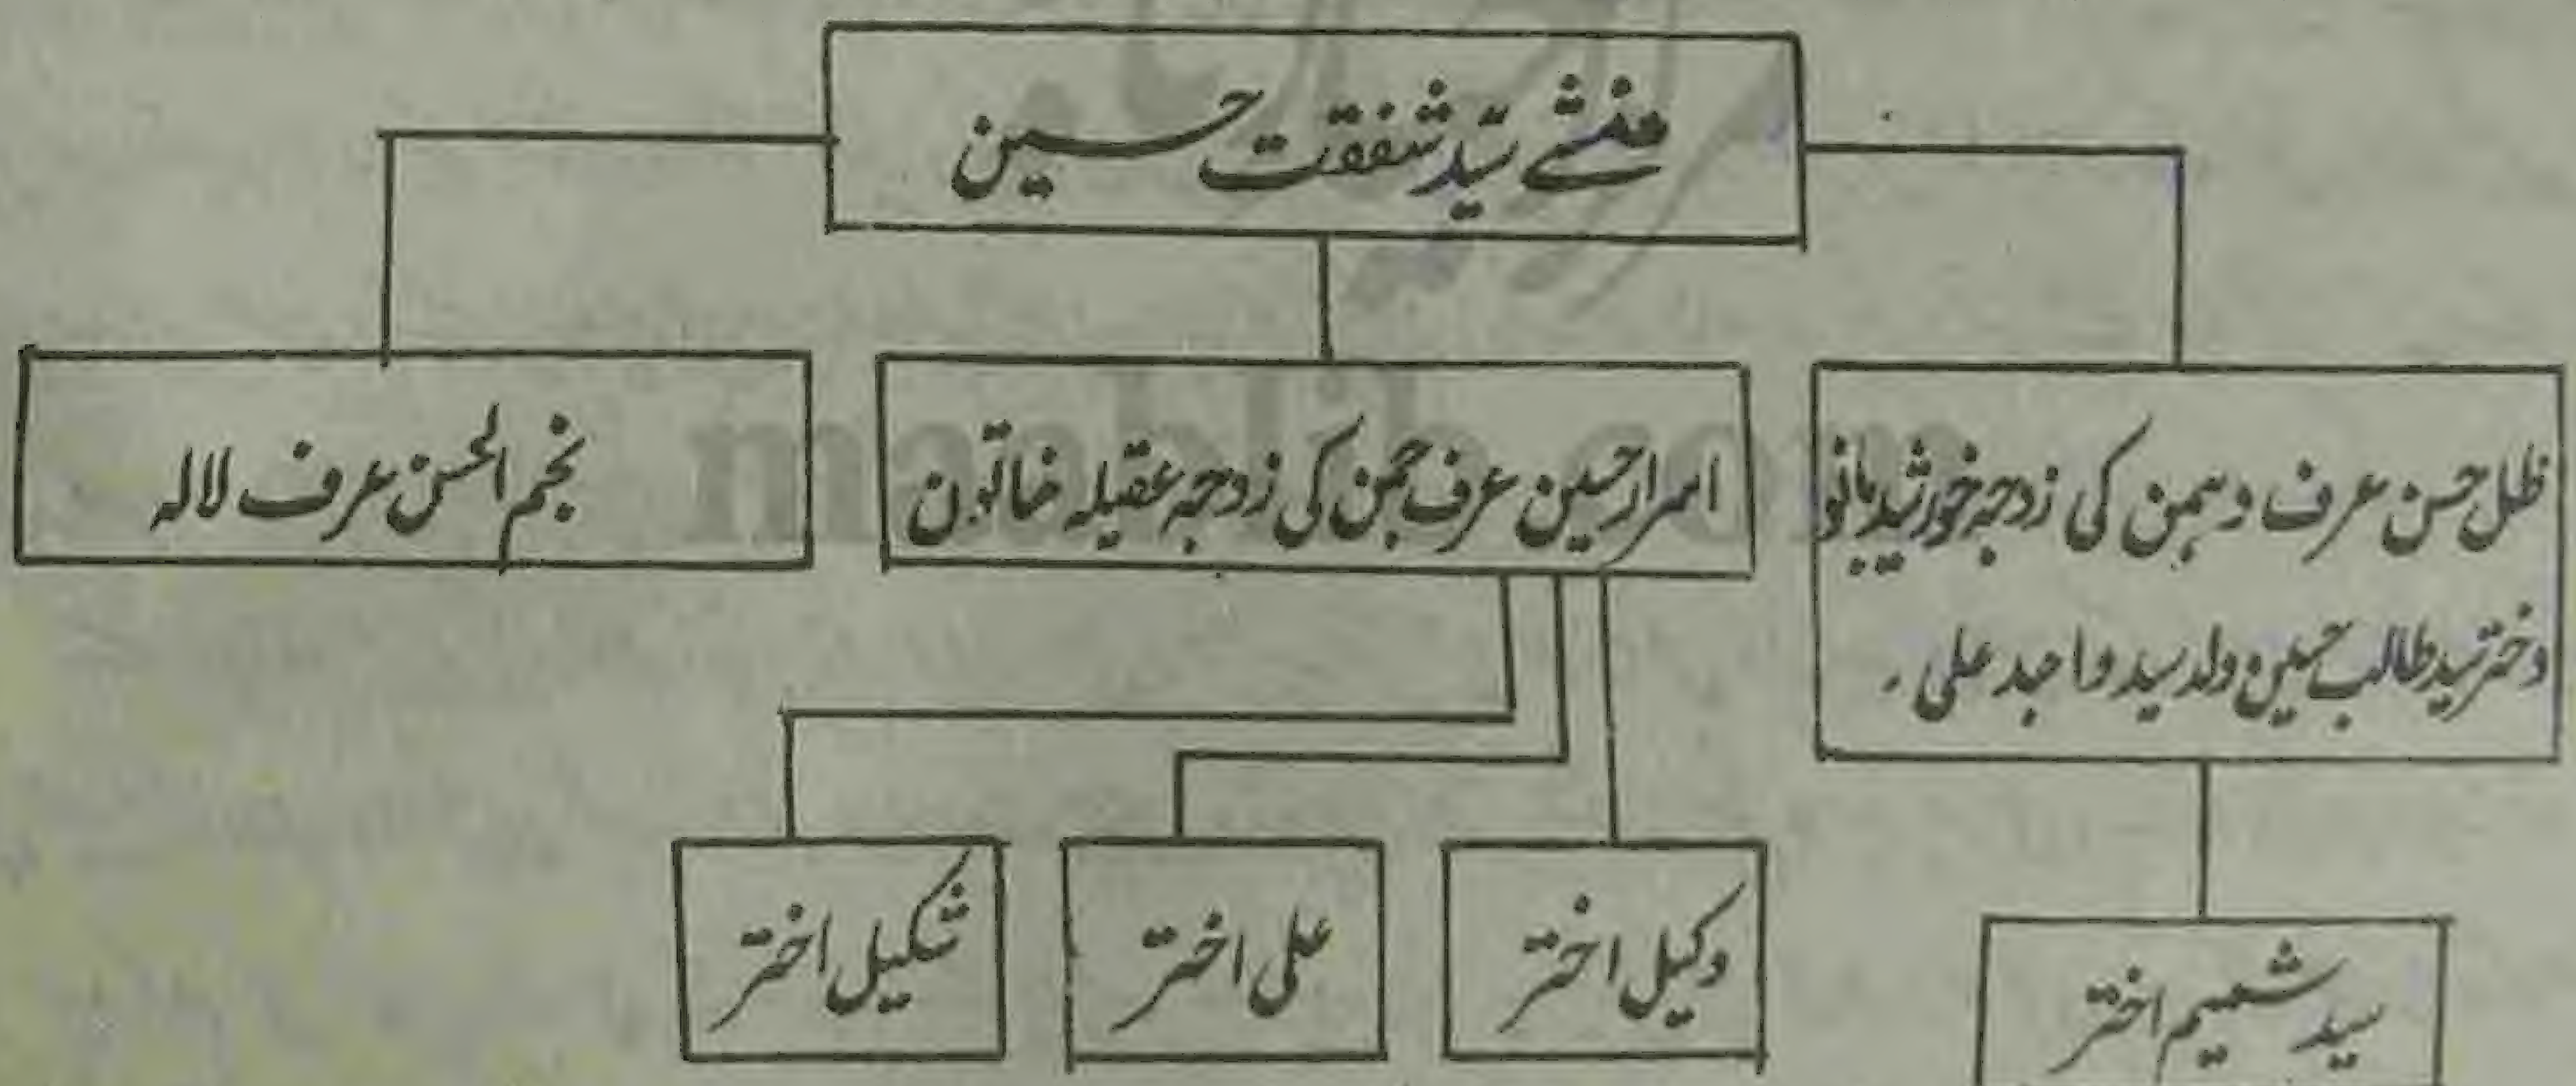 منشی سیّد شفقت حسین
ظل حسن عرف دہمن کی زوجہ خورشید بانو
دختر سید طالب حسین ولد سید واجد علی۔
اسرار حسین عرف جمن کی زوجہ عقیلہ خاتون
نجم الحسن عرف لالہ
سید شمیم اختر
وکیل اختر
علی اختر
شکیل اختر